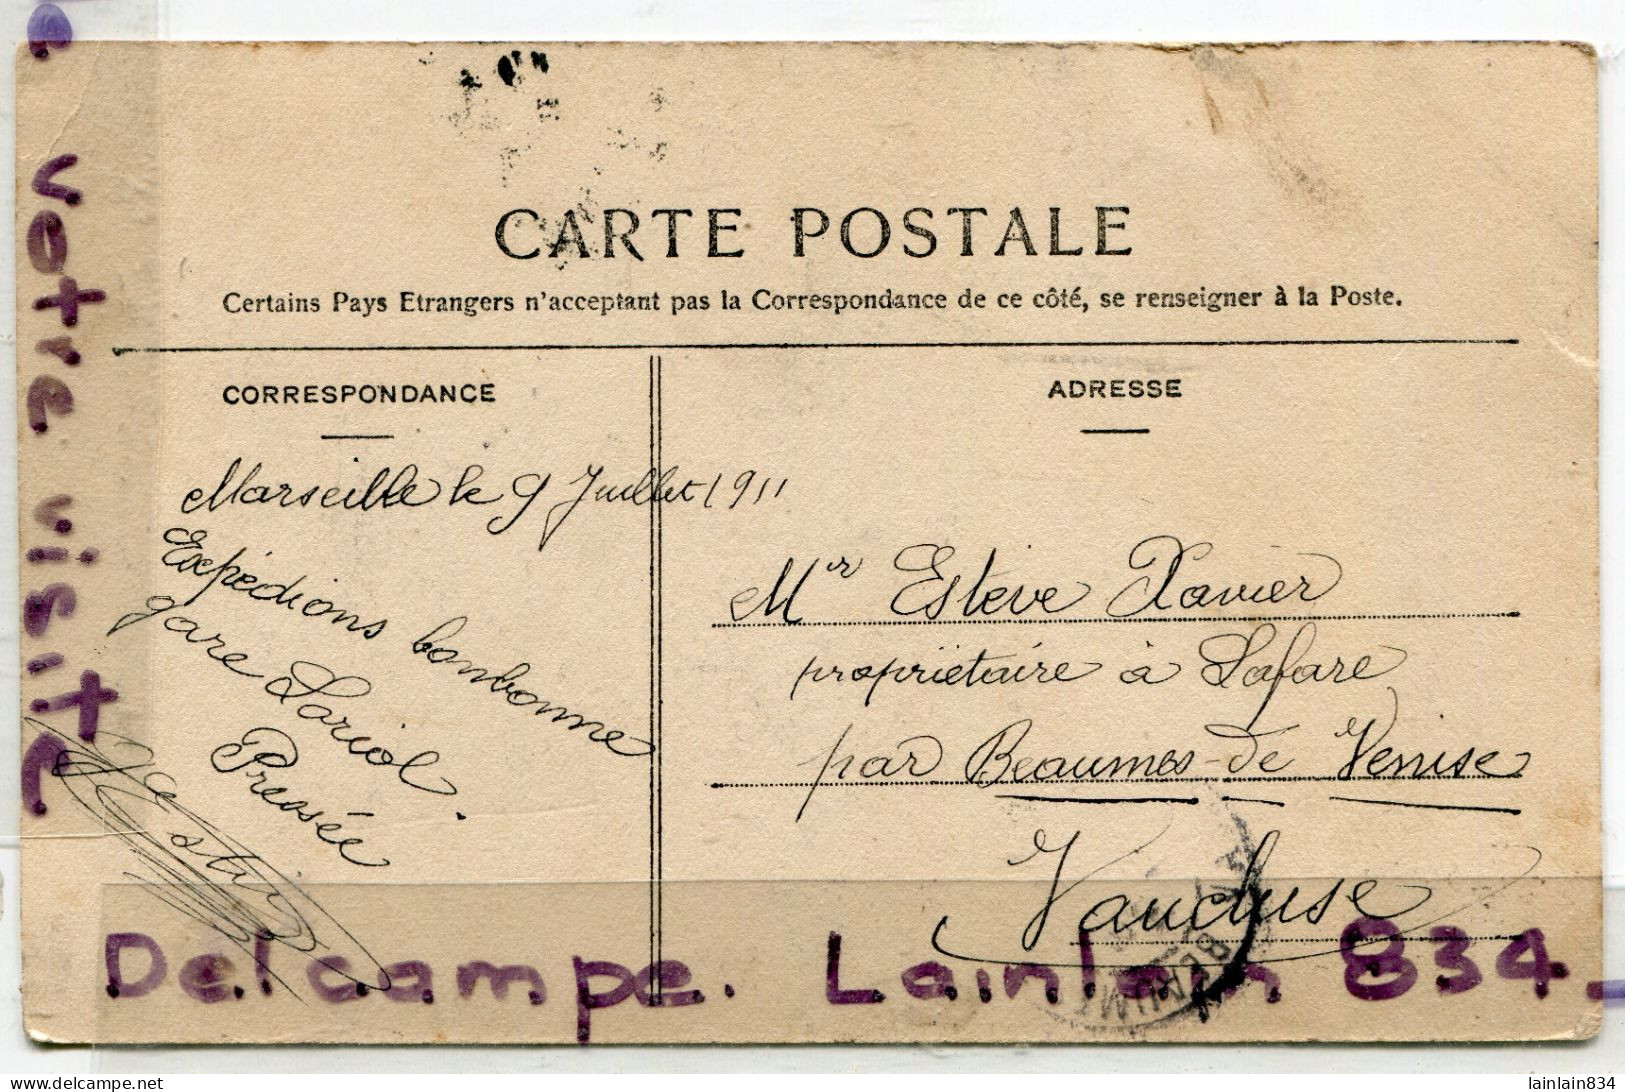 CARTE POSTALE
Certains Pays Etrangers n'acceptant pas la Correspondance de ce côté, se renseigner à la Poste.
CORRESPONDANCE
Marseille le 9 Juillet 1911
Expédions bonbonne
gare Loriol.
Pressée
ADRESSE
Mr Estève Xavier
propriétaire à Lafare
par Beaumes-de Venise
Vaucluse
votre visite
Delcampe. Lainlain 834
lainlain834